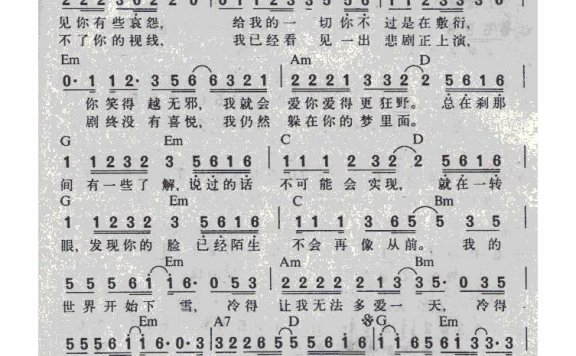 见你有些哀怨， 给我的一 切你不 过是在敷衍，
不了你的视线， 我已经看 见一出 悲剧正上演，
Em Am D
0· 1 12· 3 5 6 6 3 2 1 2 2 2 1 3 3 2 2 5 6 1 6
你笑得 越无邪， 我就会 爱你爱得 更狂野。 总在刹那
剧终没 有喜悦， 我仍然 躲在你的 梦里面。
G Em C D
1 1 2 3 2 3 5 6 1 6 1 1 1 2 3 2 2 5 6 1 6
间 有一些了 解， 说过的话 不可能 会实现， 就在一转
G Em C Bm
1 1 2 3 2 3 5 6 1 6 1 1 1 3 6 5 5 3 5
眼， 发现你的 脸 已经陌生 不会 再 像从前。 我 的
Em Am Bm
5 5 5 6 1 1 6· 0 5 2 2 2 2 2 1 3 3· 0 3 5
世界开始下 雪， 冷得 让我无法多爱一 天， 冷得
Em A7 D G Em
5 5 5 6 1 1 6· 0 3